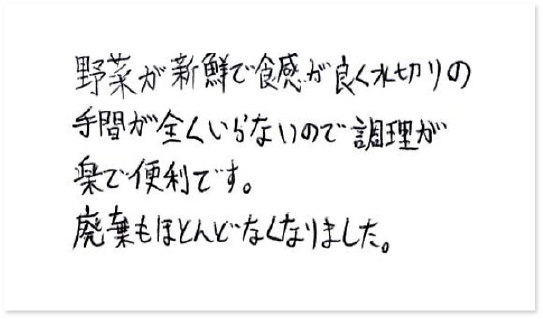 野菜が新鮮で食感が良く水切りの
手間が全くいらないので調理が
楽で便利です。
廃棄もほとんどなくなりました。